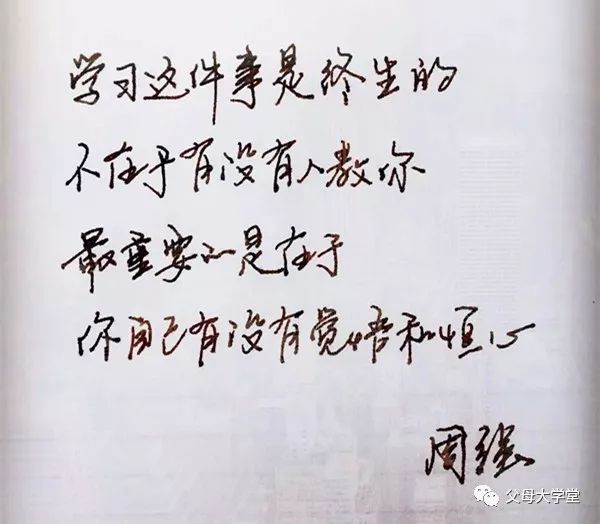 学习这件事是终生的
不在于有没有人教你
最重要的是在于
你自己有没有觉悟和恒心
周强
父母大学堂